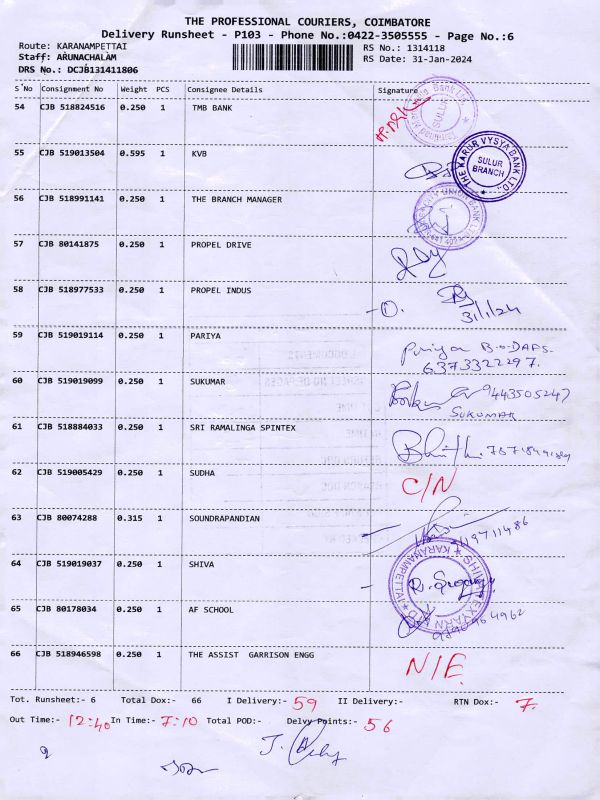 THE PROFESSIONAL COURIERS, COIMBATORE
Delivery Runsheet - P103 - Phone No.:0422-3505555 - Page No.:6
Route: KARANAMPETTAI
RS No.: 1314118
Staff: ARUNACHALAM
RS Date: 31-Jan-2024
DRS No.: DCJB131411806
S No Consignment No Weight PCS Consignee Details Signature
54 CJB 518824516 0.250 1 TMB BANK
SULUR
55 CJB 519013504 0.595 1 KVB
THE KARUR VYSYA BANK LTD.
SULUR
BRANCH
56 CJB 518991141 0.250 1 THE BRANCH MANAGER
57 CJB 80141875 0.250 1 PROPEL DRIVE
58 CJB 518977533 0.250 1 PROPEL INDUS
31/1/24
59 CJB 519019114 0.250 1 PARIYA
6373322297.
60 CJB 519019099 0.250 1 SUKUMAR
9443505247
SUKUMAR
61 CJB 518884033 0.250 1 SRI RAMALINGA SPINTEX
62 CJB 519005429 0.250 1 SUDHA C/N
63 CJB 80074288 0.315 1 SOUNDRAPANDIAN
64 CJB 519019037 0.250 1 SHIVA
KARANAMPETTAI
65 CJB 80178034 0.250 1 AF SCHOOL
66 CJB 518946598 0.250 1 THE ASSIST GARRISON ENGG N/E
Tot. Runsheet:- 6 Total Dox:- 66 I Delivery:- 59 II Delivery:- RTN Dox:- 7.
Out Time:- 12:40 In Time:- 7:10 Total POD:- Delvy Points:- 56